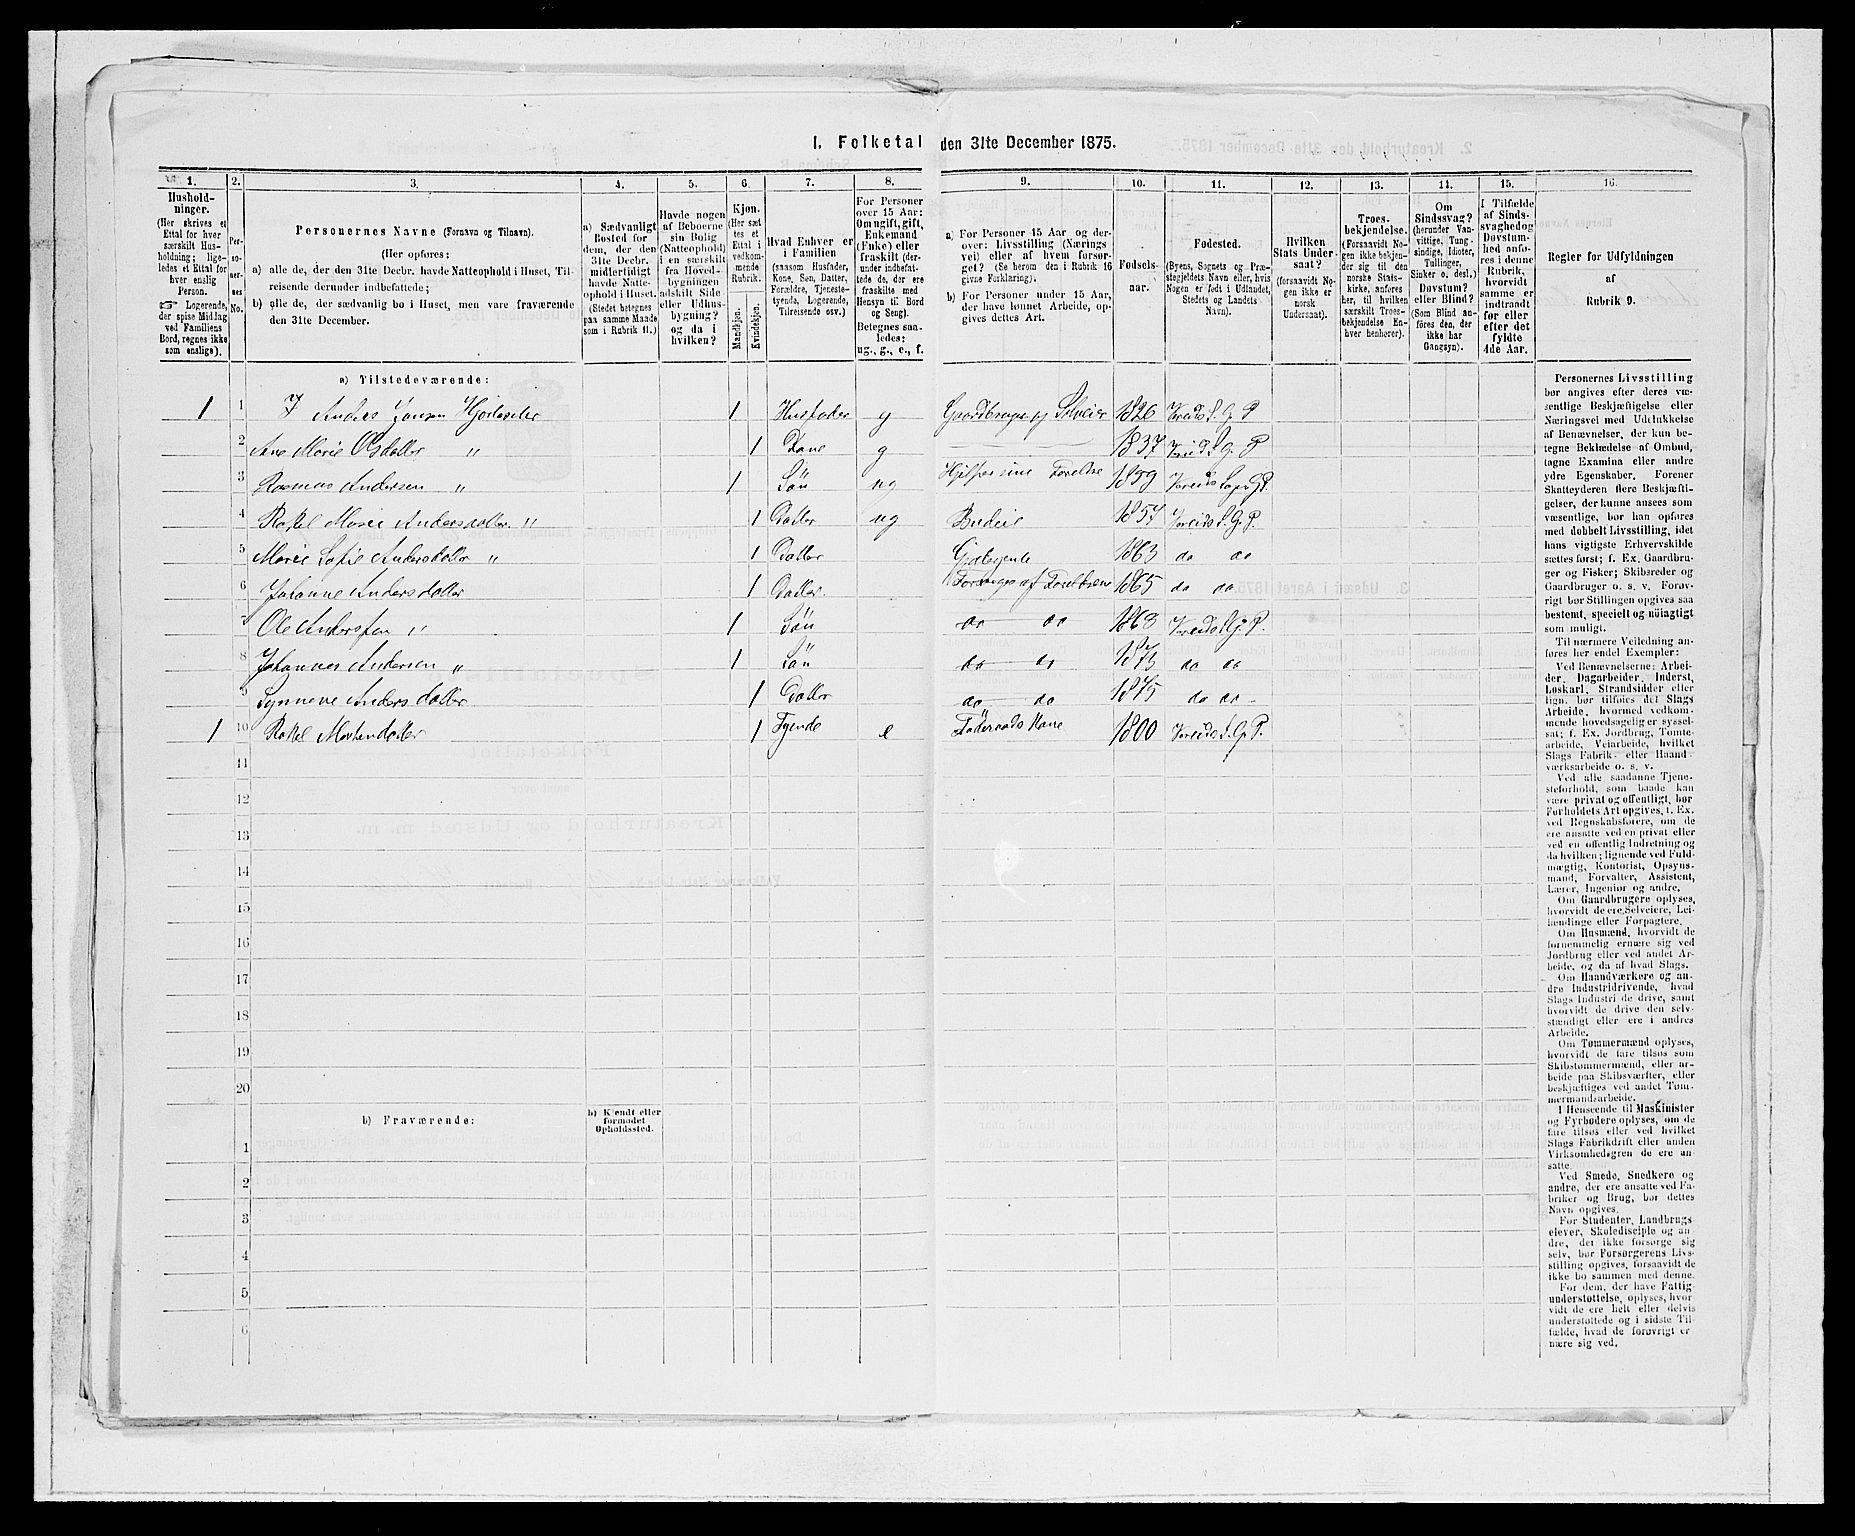 I. Folketal den 31te December 1875.
1. 2. 3. 4. 5. 6. 7. 8. 9. 10. 11. 12. 13. 14. 15. 16.
Hushold-
ninger.
(Her skrives et
Ettal for hver
særskilt Hus-
holdning; lige-
ledes et Ettal for
hver enslig
Person.
☞ Logerende,
der spise Middag
ved Familiens
Bord, regnes ikke
som enslige).
Per-
so-
ner-
nes
No.
Personernes Navne (Fornavn og Tilnavn).
(Her opføres:
a) alle de, der den 31te Decbr. havde Natteophold i Huset, Til-
reisende derunder indbefattede;
b) alle de, der sædvanlig bo i Huset, men vare fraværende
den 31te December.
a) Sædvanligt
Bosted for
dem, der den
31te Decbr.
midlertidigt
havde Natte-
ophold i Huset.
(Stedet betegnes
paa samme Maade
som i Rubrik 11.)
Havde nogen
af Beboerne
sin Bolig
(Natteophold)
i en særskilt
fra Hoved-
bygningen
adskilt Side
eller Udhus-
bygning?
og da i
hvilken?
Kjøn.
(Her sæt-
tes et
Ettal i
vedkom-
mende
Rubrik.
Mandkjøn.
Kvindekjøn.
Hvad Enhver er
i Familien
(saasom Husfader,
Kone, Søn, Datter,
Forældre, Tjeneste-
tyende, Logerende,
Tilreisende osv.)
For Personer
over 15 Aar:
Om ugift, gift,
Enkemand
(Enke) eller
fraskilt (der-
under indbefat-
tede de, der ere
fraskilte med
Hensyn til Bord
og Seng).
Betegnes saa-
ledes:
ug., g., e., f.
a) For Personer 15 Aar og der-
over: Livsstilling (Nærings
vei) eller af hvem forsor-
get? (Se herom den i Rubrik 16
givne Forklaring).
b) For Personer under 15 Aar,
der have lønnet Arbeide, op-
gives dettes Art.
Fødsels-
aar.
Fødested.
(Byens, Sognets og Præ-
stegjeldets Navn eller, hvis
Nogen er født i Udlandet,
Stedets og Landets
Navn).
Hvilken
Stats Under-
saat?
(forsaavidt No-
gen ikke er
norsk
Undersaat).
Troes-
bekjendelse.
(Forsaavidt No-
gen ikke bekjen-
der sig til den
norske Stats-
kirke, anføres
her, til hvilken
særskilt Troes-
bekjendelse En-
hver henhører).
Om
Sindssvag?
(herunder Van-
vittige, Tung-
sindige, Idioter,
Tullinger,
Sinker o. desl.)
Døvstum?
eller Blind?
(Som Blind an-
føres den, der
ikke har
Gangsyn).
I Tilfælde
af Sinds-
svaghed og
Døvstum-
hed anfø-
res i denne
Rubrik,
hvorvidt
samme er
indtraadt
før eller
efter det
fyldte
4de Aar.
Regler for Udfyldningen
af
Rubrik 9.
a) Tilstedeværende:
1 1 Anders Jansen Hjorteseter 1 Husfader g Gaardbruger og Selveier 1826 S. G. P
2 Ane Marie Olsdatter „ 1 Kone g 1837 S. G. P
3 Rasmus Andersen „ 1 Søn ug Hjelper sine Forældre 1859
4 Rakel Marie Andersdatter „ 1 Datter ug Budeie 1857 S. G. P
5 Marie Sofie Andersdatter „ 1 Datter Gjetergente 1863 do do
6 Johanne Andersdatter 1 Datter Forsørges af Forældrene 1865 do do
7 Ole Andersen „ 1 Søn do do 1868 S. G. P.
8 Johannes Andersen „ 1 Søn do do 1873 do do
9 Synneve Andersdatter 1 Datter do do 1875 do do
1 10 Rakel Mortensdatter 1 Tyende e Føderaads Kone 1800 S. G. P.
11
12
13
14
15
16
17
18
19
20
b) Fraværende:
b) Kjendt eller
formodet
Opholdssted.
1
2
3
4
5
6
Personernes Livsstilling
bør angives efter deres væ-
sentlige Beskjæftigelse eller
Næringsvei med Udelukkelse
af Benævnelser, der kun be-
tegne Beklædelse af Ombud,
tagne Examina eller andre
ydre Egenskaber. Forener
Skatteyderen flere Beskjæfti-
gelser, der kunne ansees som
væsentlige, bør han opføres
med dobbelt Livsstilling, idet
hans vigtigste Erhvervskilde
sættes først; f. Ex. Gaardbru-
ger og Fisker; Skibsreder og
Gaardbruger o. s. v. Forøv-
rigt bør Stillingen opgives saa
bestemt, specielt og nöiagtigt
som muligt.
Til nærmere Veiledning an-
føres her endel Exempler:
Ved Benævnelserne: Arbei-
der, Dagarbeider, Inderst,
Løskarl, Strandsidder eller
lign. bør tilføies det Slags
Arbeide, hvormed vedkom-
mende hovedsagelig er syssel-
sat; f. Ex. Jordbrug, Tomte-
arbeide, Veiarbeide, hvilket
Slags Fabrik- eller Haand-
værksarbeide o. s. v.
Ved alle saadanne Tjene-
steforhold, som baade kan
være privat og offentligt, bør
Forholdets Art opgives, t. Ex.
ved Regnskabsførere, om de
ere ansatte ved en privat eller
ved en offentlig Indretning og
da hvilken; lignende ved Fuld-
mægtig, Kontorist, Opsyns-
mand, Forvalter, Assistent,
Lærer, Ingeniør og andre.
Om Gaardbrugere oplyses,
hvorvidt de ere Selveiere, Lei-
lændinge eller Forpagtere.
Om Husmænd, hvorvidt de
fornemmelig ernære sig ved
Jordbrug eller ved andet Ar-
beide, og da af hvad Slags.
Om Haandværkere og an-
dre Industridrivende, hvad
Slags Industri de drive, samt
hvorvidt de drive den selv-
stændigt eller ere i andres
Arbeide.
Om Tømmermænd oplyses,
hvorvidt de fare tilsøs som
Skibstømmermænd, eller ar-
beide paa Skibsværfter, eller
beskjæftiges ved andet Tøm-
mermandsarbeide.
I Henseende til Maskinister
og Fyrbødere oplyses, om de
fare tilsøs eller ved hvilket
Slags Fabrikdrift eller anden
Virksomhedsgren de ere an-
satte.
Ved Smede, Snedkere og
andre, der ere ansatte ved Fa-
briker og Brug, bør dettes
Navn opgives.
For Studenter, Landbrugs
elever, Skoledisciple og an-
dre, der ikke forsørge sig
selv, bør Forsørgerens Livs-
stilling opgives, forsaavidt de
ikke bo sammen med denne.
For dem, der have Fattig-
understøttelse, oplyses, hvor-
vidt de ere helt eller delvis
understøttede og i sidste Til-
fælde, hvad de forøvrigt er
nære sig ved.